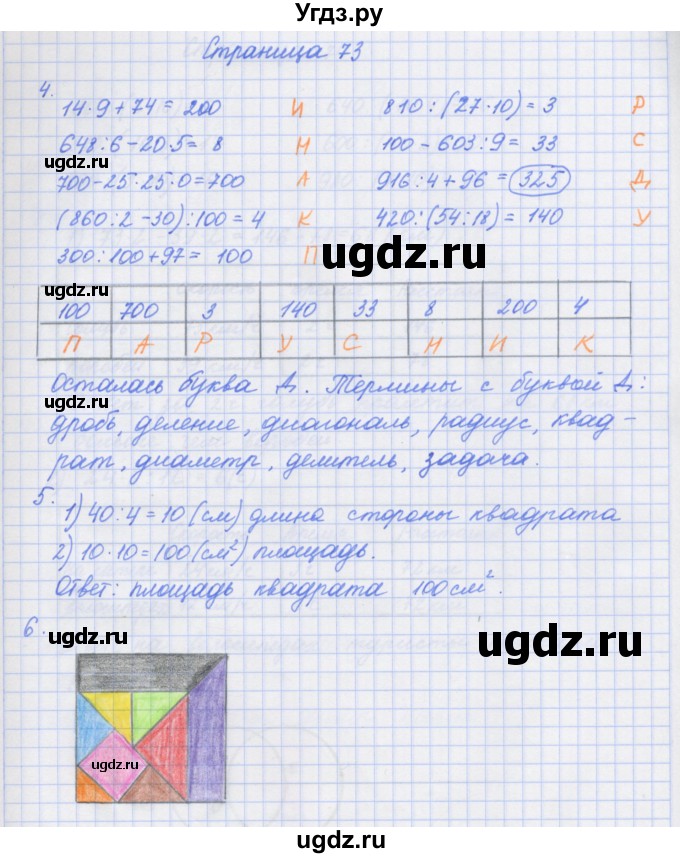 Угдз.ру
Страница 73
4.
14·9+74= 200 И 810:(27·10)= 3 Р
648:6-20·5= 8 Н 100-603:9= 33 С
угдз.ru
700-25·25·0=700 А 916:4+96=325 Д
(860:2-30):100=4 К 420:(54:18)= 140 У
300:100+97= 100 П
ugdz.ru
угдз.ru
100 700 3 140 33 8 200 4
П А Р У С Н И К
Осталась буква Д. Термины с буквой Д:
угдз.ru
дробь, деление, диагональ, радиус, квад-
рат, диаметр, делитель, задача.
5.
1) 40:4=10(см) длина стороны квадрата
2) 10·10=100(см²) площадь.
Ответ: площадь квадрата 100см².
6.
ugdz.ru
ugdz.ru
ugdz.ru